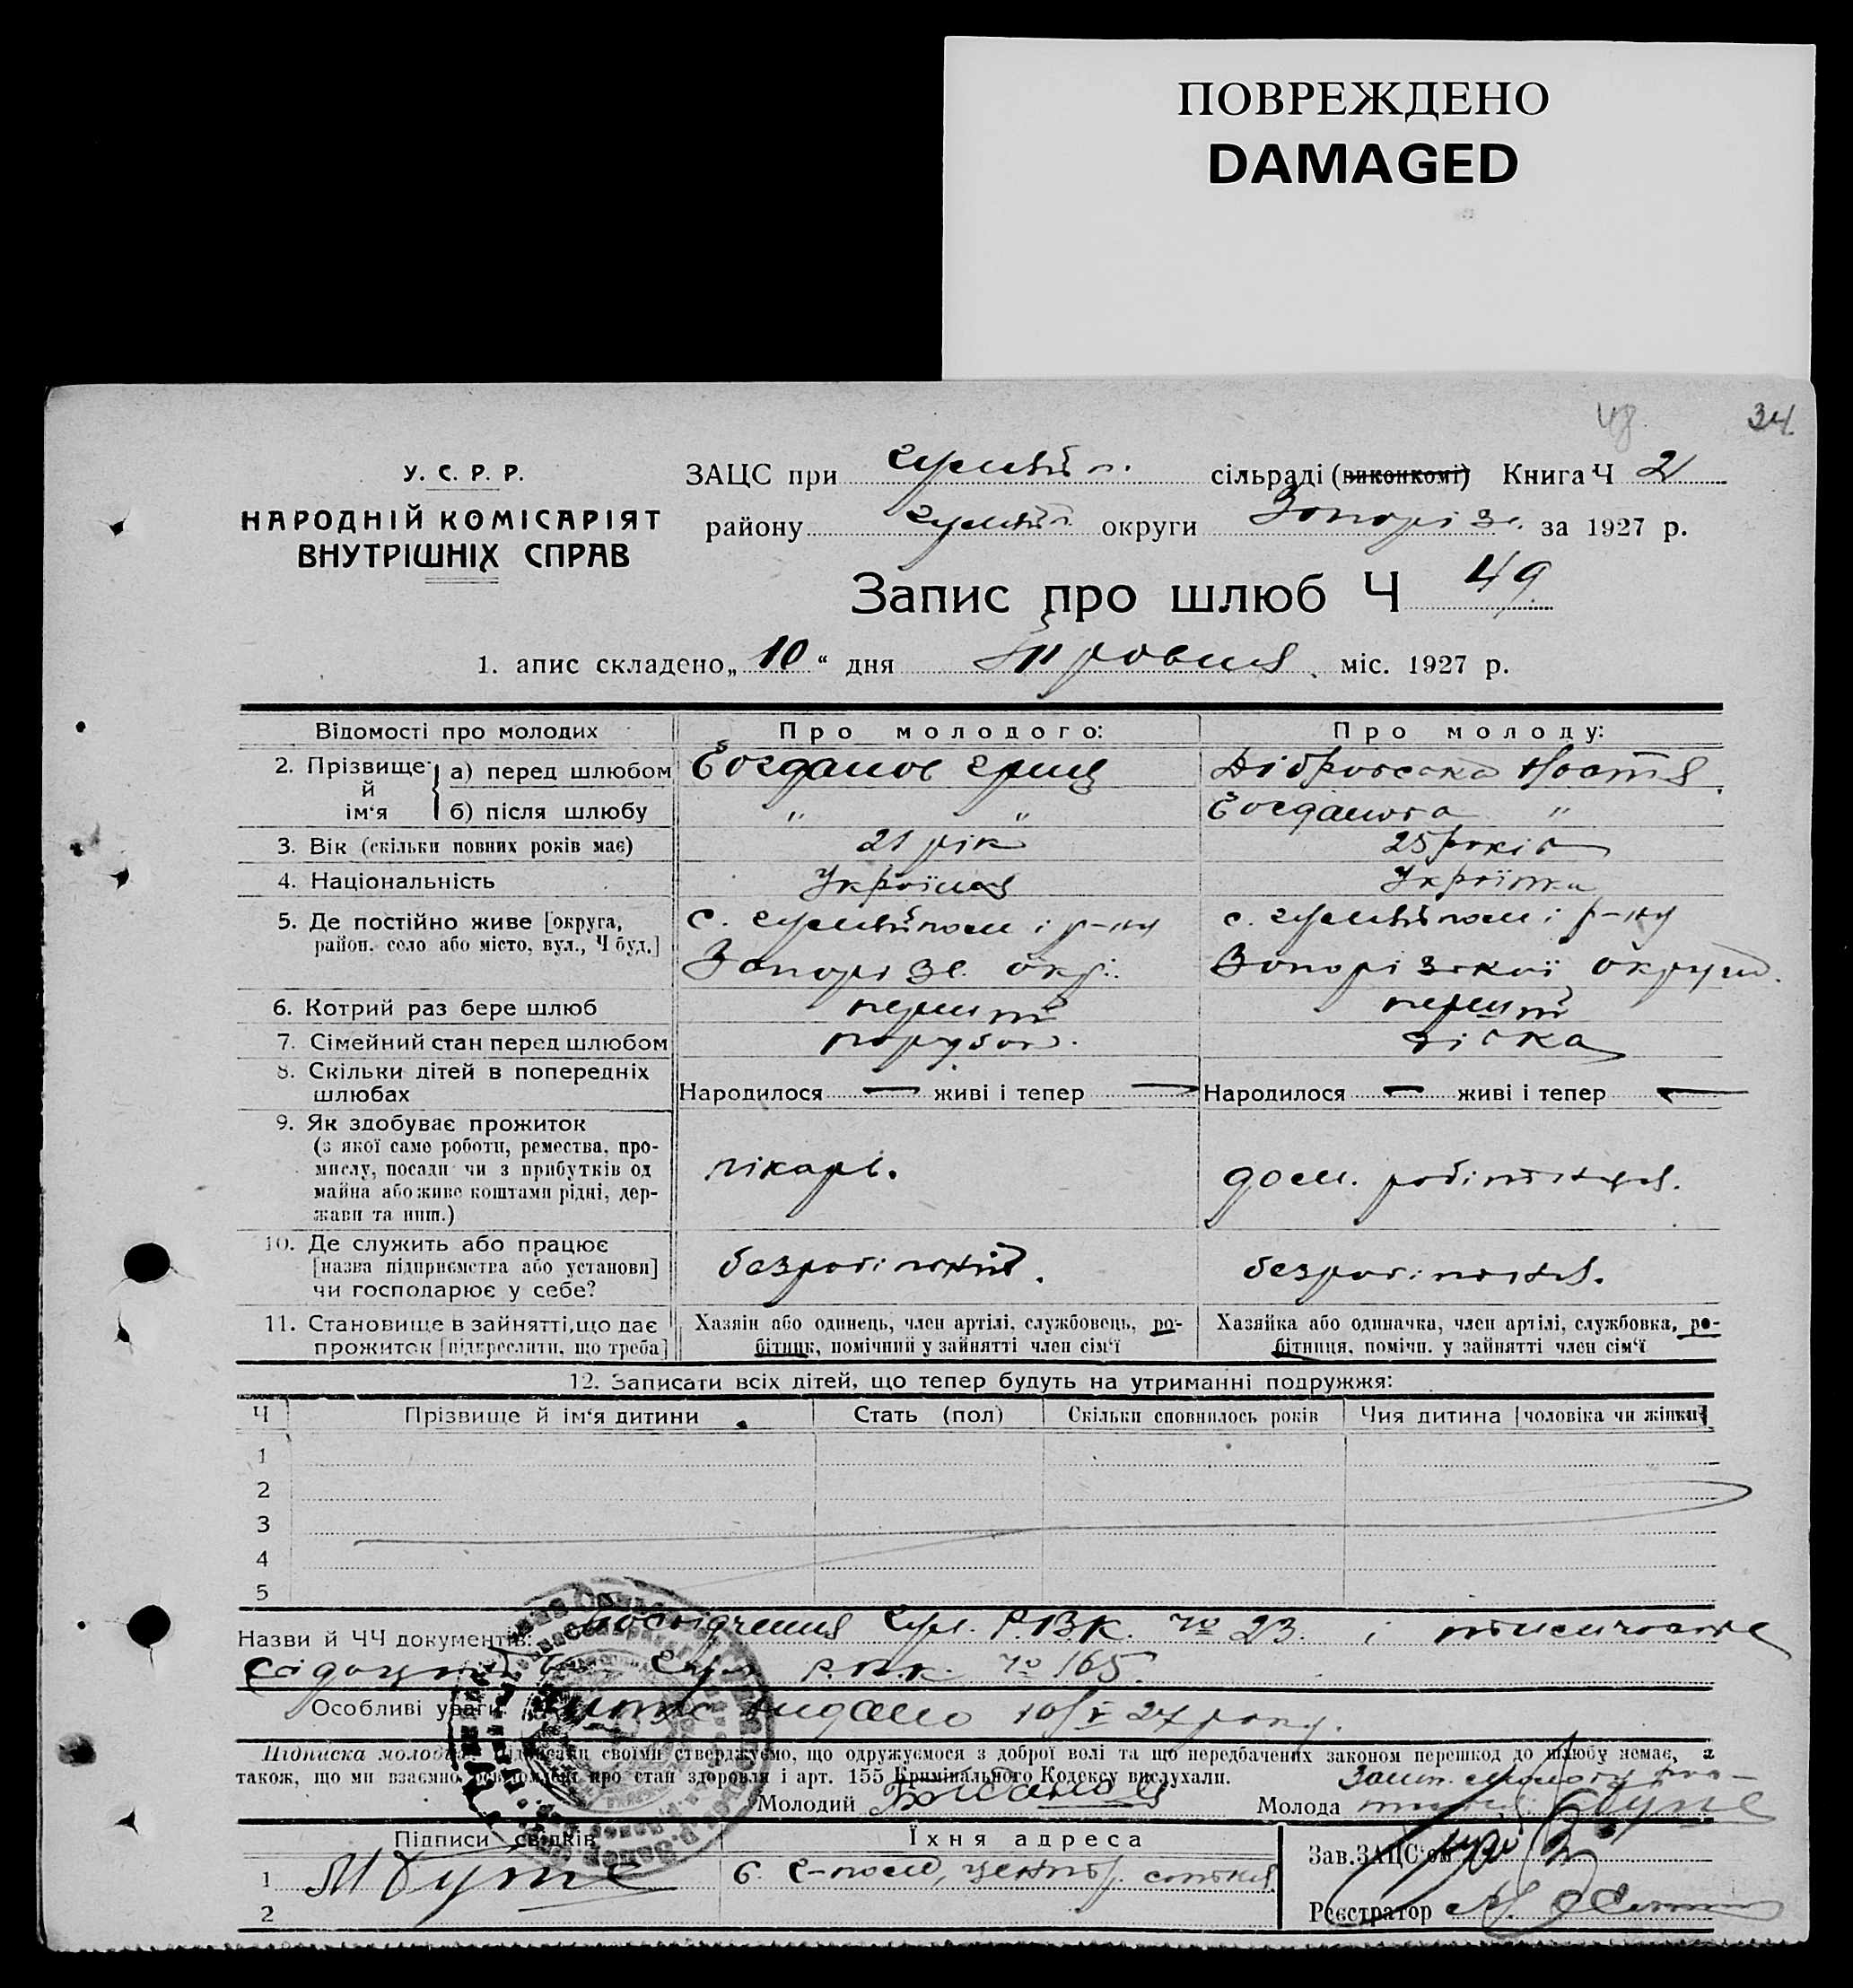 ПОВРЕЖДЕНО
DAMAGED
48
34
У. С. Р. Р.
НАРОДНІЙ КОМІСАРІЯТ
ВНУТРІШНІХ СПРАВ
ЗАЦС при Гуляйп. сільраді (виконкомі) Книга Ч 2
району Гуляйп. округи Запоріз. за 1927 р.
Запис про шлюб Ч 49
1. апис складено „ 10 “ дня Травня міс. 1927 р.
Відомості про молодих
Про молодого:
Про молоду:
2. Прізвище й ім‘я
а) перед шлюбом
Богданов Гриць
Дібровська Настя
б) після шлюбу
" "
Богданова "
3. Вік (скільки повних років має)
21 рік
25 років
4. Національність
Українец
Українка
5. Де постійно живе [округа,
район, село або місто, вул., Ч буд.]
с. Гуляйполе і р-ну
Запоріз. окр.
с. Гуляйполе і р-ну
Запорізької округи.
6. Котрий раз бере шлюб
перший
перший
7. Сімейний стан перед шлюбом
парубок.
дівка
8. Скільки дітей в попередніх
шлюбах
Народилося — живі і тепер —
Народилося — живі і тепер —
9. Як здобуває прожиток
(з якої саме роботи, ремества, про-
мислу, посади чи з прибутків од
майна або живе коштами рідні, дер-
жави та инш.)
лікарь.
дом. робітниця.
10. Де служить або працює
[назва підприємства або установи]
чи господарює у себе?
безробітний.
безробітня.
11. Становище в зайнятті, що дає
прожиток [підкреслити, що треба]
Хазяїн або одинець, член артілі, службовець, ро-
бітник, помічний у зайнятті член сім‘ї
Хазяйка або одиначка, член артілі, службовка, ро-
бітниця, помічн. у зайнятті член сім‘ї
12. Записати всіх дітей, що тепер будуть на утриманні подружжя:
Ч
Прізвище й ім‘я дитини
Стать (пол)
Скільки сповнилось років
Чия дитина [чоловіка чи жінки]
1
2
3
4
5
Назви й ЧЧ документів: посвідчення Гул. Р.В.К. № 23. і
Гул. Р.В.К. № 165.
Особливі уваги: видано 10/V 27 року.
Підписка молодих. Підписами своїми стверджуємо, що одружуємося з доброї волі та що передбачених законом перешкод до шлюбу немає, а
також, що ми взаємно повідомлені про стан здоровля і арт. 155 Кримінального Кодексу вислухали.
Молодий
Молода
Підписи свідків
Їхня адреса
Зав. ЗАЦС‘ом
1
2
Реєстратор